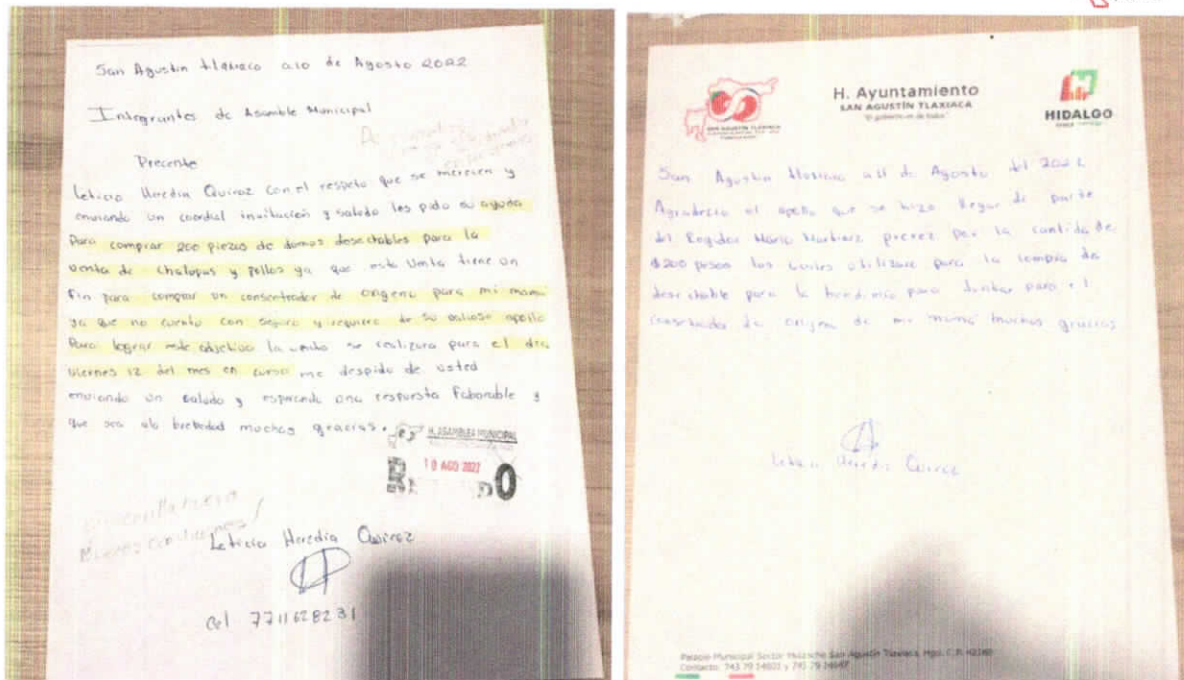 San Agustin tlaxiaca a 10 de Agosto 2022
Integrantes de Asamble Municipal
Precente
Leticia Heredia Quiroz con el respeto que se merecen y
enviando un coordial invitación y saludo les pido su ayuda
Para comprar 200 piezas de domos desectables para la
venta de chalupas y pollos ya que esta venta tiene un
fin para comprar un consentrador de origeno para mi mama
ya que no cuento con seguro y requiero de su balioso apollo
Para lograr este objectivo la venta se realizara para el dia
viernes 12 del mes en curso me despido de usted
enviando un saludo y esperando una respuesta faborable y
que sea ala brebedad muchas gracias.
H. ASAMBLEA MUNICIPAL
10 AGO 2022
Leticia Heredia Quiroz
Cel 7711628231
H. Ayuntamiento
SAN AGUSTÍN TLAXIACA
SAN AGUSTÍN TLAXIACA
HIDALGO
San Agustin tlaxiaca a 11 de Agosto del 2022
Agradecio el apollo que se hizo llegar de parte
del Regidor Mario Martinez perez por la cantida de
$200 pesos los cuales utilizare para la compra de
desectable para la para juntar para el
de origeno de mi mama muchas gracias
Leticia Heredia Quiroz
Palacio Municipal Sector Huixache San Agustín Tlaxiaca, Hgo. C.P. 42160
Contacto: 743 79